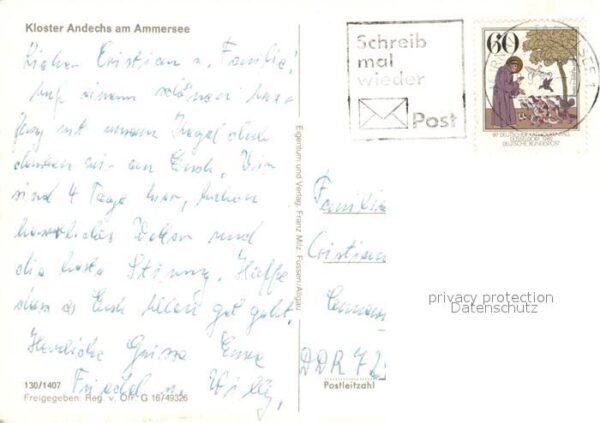 Kloster Andechs am Ammersee
Lieber Cristian u. Familie!
Auf einem schönen
mit unserem
wir an Euch. Wir
sind 4 Tage hier, haben
herrliches Wetter und
die beste Stimmung. Hoffe
dass es Euch allen gut geht.
Herzliche Grüsse Eure
Friedl u. Willy.
130/1407
Freigegeben: Reg. v. Obb. G 16/49326
Eigentum und Verlag, Franz Milz, Füssen/Allgäu
Schreib
mal
wieder
Post
60
87. DEUTSCHER KATHOLIKENTAG
DÜSSELDORF 1982
DEUTSCHE BUNDESPOST
Familie
Cristian
DDR 72
Postleitzahl
privacy protection
Datenschutz